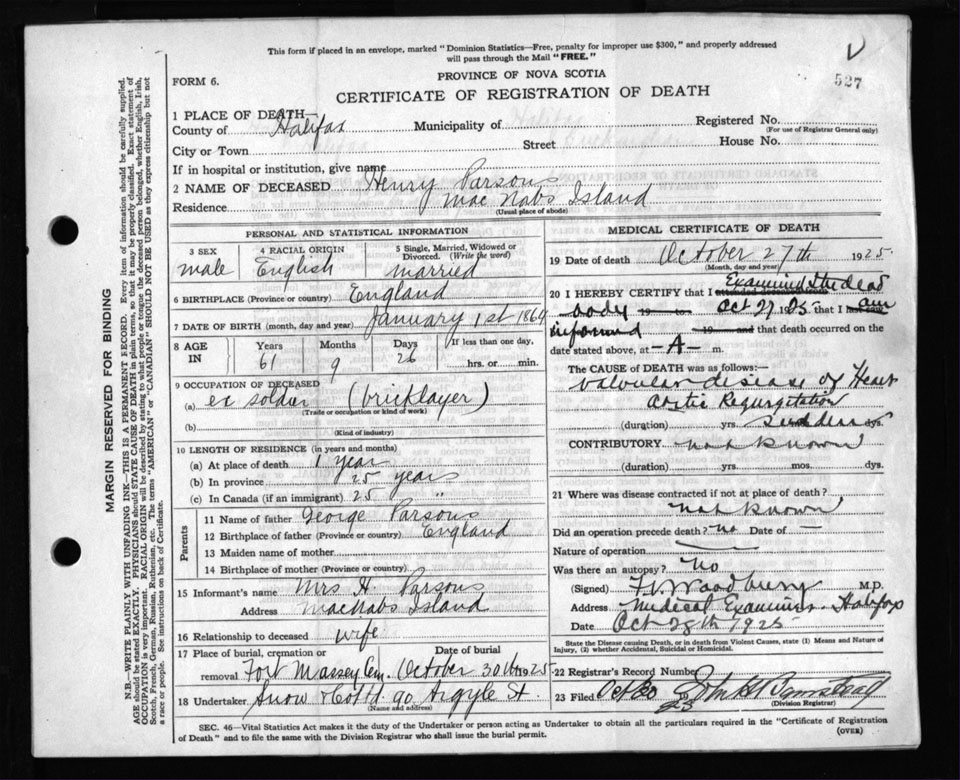 This form if placed in an envelope, marked "Dominion Statistics—Free, penalty for improper use $300," and properly addressed
will pass through the Mail "FREE."
PROVINCE OF NOVA SCOTIA
527
FORM 6.
CERTIFICATE OF REGISTRATION OF DEATH
1 PLACE OF DEATH—
County of Halifax Municipality of Registered No.
(For use of Registrar General only)
City or Town Street House No.
If in hospital or institution, give name
2 NAME OF DECEASED Henry Parsons
Residence MacNabs Island
(Usual place of abode)
PERSONAL AND STATISTICAL INFORMATION
3 SEX 4 RACIAL ORIGIN 5 Single, Married, Widowed or
Divorced. (Write the word)
male English married
6 BIRTHPLACE (Province or country) England
7 DATE OF BIRTH (month, day and year) January 1st 1864
8 AGE IN Years Months Days If less than one day,
61 9 26 hrs. or min.
9 OCCUPATION OF DECEASED
(a) ex soldier (bricklayer)
(Trade or occupation or kind of work)
(b)
(Kind of industry)
10 LENGTH OF RESIDENCE (in years and months)
(a) At place of death 1 year
(b) In province 25 years
(c) In Canada (if an immigrant) 25 "
Parents
11 Name of father George Parsons
12 Birthplace of father (Province or country) England
13 Maiden name of mother
14 Birthplace of mother (Province or country)
15 Informant's name Mrs H Parsons
Address MacNabs Island
16 Relationship to deceased wife
17 Place of burial, cremation or Date of burial
removal Fort Massey Cem. October 30th 1925
18 Undertaker Snow & Co Ltd 90 Argyle St.
(Name and address)
MEDICAL CERTIFICATE OF DEATH
19 Date of death October 27th 1925
(Month, day and year)
20 I HEREBY CERTIFY that I attended deceased from Examined the dead
body 19 to Oct 27 1925 that I last saw am
informed 19 and that death occurred on
date stated above, at —A— m.
The CAUSE of DEATH was as follows:—
Valvular disease of Heart
Aortic Regurgitation
(duration) yrs. sudden dys.
CONTRIBUTORY not known
(duration) yrs. mos. dys.
21 Where was disease contracted if not at place of death?
not known
Did an operation precede death? no Date of —
Nature of operation
Was there an autopsy? no
(Signed) Woodbury M.D.
Address Medical Examiner Halifax
Date Oct 28th 1925
State the Disease causing Death, or in death from Violent Causes, state (1) Means and Nature of
Injury, (2) whether Accidental, Suicidal or Homicidal.
22 Registrar's Record Number
23 Filed Oct 30 25 John H Barnstead
(Division Registrar)
SEC. 46—Vital Statistics Act makes it the duty of the Undertaker or person acting as Undertaker to obtain all the particulars required in the "Certificate of Registration
of Death" and to file the same with the Division Registrar who shall issue the burial permit.
(OVER)
MARGIN RESERVED FOR BINDING
N.B.—WRITE PLAINLY WITH UNFADING INK—THIS IS A PERMANENT RECORD. Every item of information should be carefully supplied.
AGE should be stated EXACTLY. PHYSICIANS should STATE CAUSE OF DEATH in plain terms, so that it may be properly classified. Exact statement of
OCCUPATION is very important. RACIAL ORIGIN will be described by stating to what people or tongue the deceased person belonged, whether English, Irish,
Scotch, French, German, Russian, Ruthenian, etc. The terms "AMERICAN" or "CANADIAN" SHOULD NOT BE USED as they express citizenship but not
a race or people. See instructions on back of Certificate.